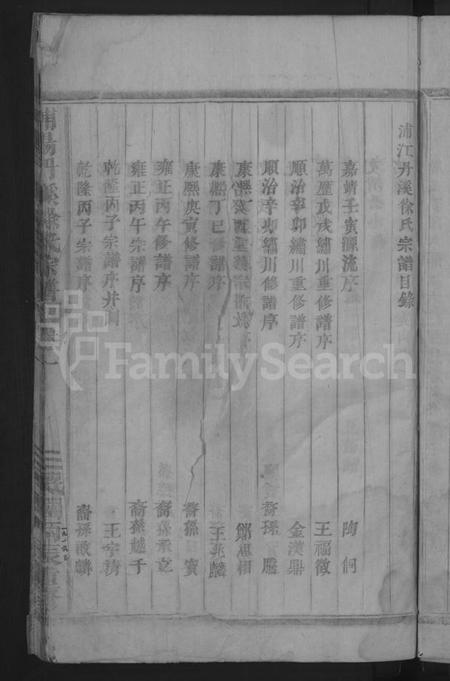 浦江丹溪徐氏宗譜目錄
嘉靖壬寅源流序 陶侗
萬歷戊戌繡川重修譜序 王福徵
順治辛卯繡川重修譜序 金漢鼎
順治辛卯繡川修譜序 裔孫
康熙癸酉重 鄭思相
康熙丁巳修譜序 王兆麟
康熙庚寅修譜序 裔孫 賓
雍正丙午修譜序 裔孫
雍正丙午宗譜序 裔孫越千
乾隆丙子宗譜序并 王宗
乾隆丙子宗譜序 裔孫 麟
浦陽丹溪徐氏宗譜
FamilySearch